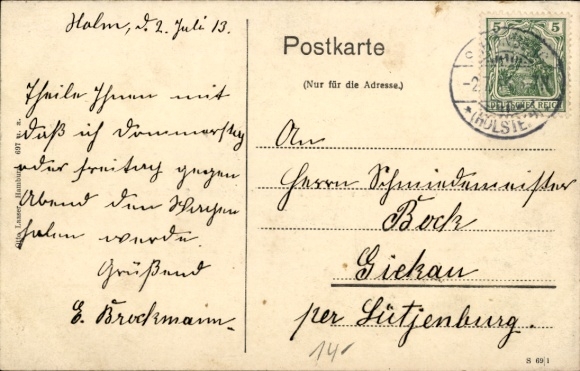 Holm, d. 2. Juli 13.
Theile Ihnen mit
daß ich Donnerstag
oder Freitach gegen
Abend den Wachen
holen werde.
Grüßend
E. Brockmann.
Otto Lasser, Hamburg 697
Postkarte
(Nur für die Adresse.)
5 5
DEUTSCHES REICH
(HOLSTE
An
Herrn Schmiedemeister
Bock
Giekau
per Lütjenburg.
14
S 69/1